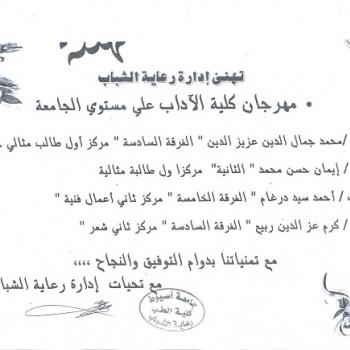 تهنئ إدارة رعاية الشباب
• مهرجان كلية الآداب علي مستوي الجامعة
/محمد جمال الدين عزيز الدين " الفرقة السادسة " مركز أول طالب مثالي
/ إيمان حسن محمد " الثانية" مركزا ول طالبة مثالية
/ أحمد سيد درغام " الفرقة الخامسة " مركز ثاني أعمال فنية "
/ كرم عز الدين ربيع " الفرقة السادسة " مركز ثاني شعر "
مع تمنياتنا بدوام التوفيق والنجاح ،،،،
مع تحيات إدارة رعاية الشبا
جامعة أسيوط
كلية الطب
رعاية الشباب